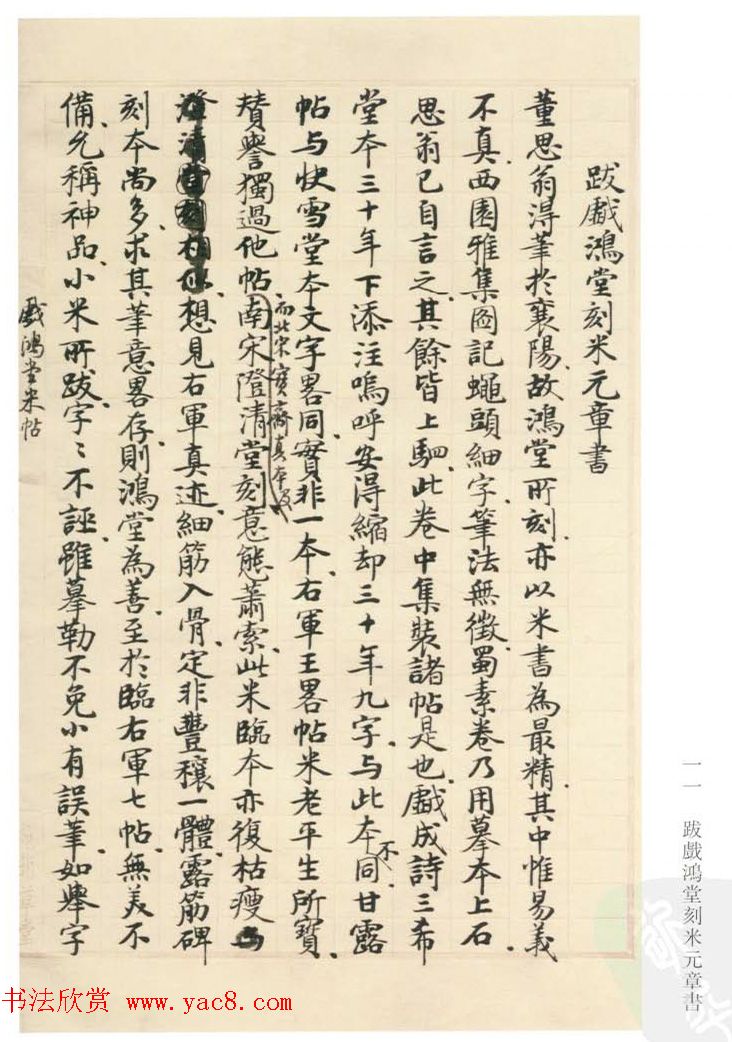 跋戲鴻堂刻米元章書
董思翁得筆於襄陽故鴻堂所刻亦以米書為最精其中惟易義
不真西園雅集圖記蠅頭細字筆法無徵蜀素卷乃用摹本上石
思翁已自言之其餘皆上駟此卷中集裝諸帖是也戲成詩三希
堂本三十年下添注嗚呼安得縮却三十年九字与此本不同甘露
帖与快雪堂本文字畧同實非一本右軍王畧帖米老平生所寶
賛譽獨過他帖而北宋寶齋真本及南宋澄清堂刻意態蕭索此米臨本亦復枯瘦
想見右軍真迹細筋入骨定非豐穰一體露筋碑
刻本尚多求其筆意畧存則鴻堂為善至於臨右軍七帖無美不
備允稱神品小米所跋字〻不誣雖摹勒不免小有誤筆如舉字
戲鴻堂米帖
一一 跋戲鴻堂刻米元章書
书法欣赏 www.yac8.com